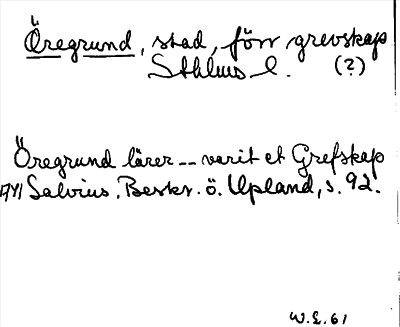 Öregrund, stad, förr grevskap
Sthlms l. (?)
Öregrund lärer -- varit et Grefskap
1741 Salvius, Beskr. ö. Upland, s. 92.
W.L. 61